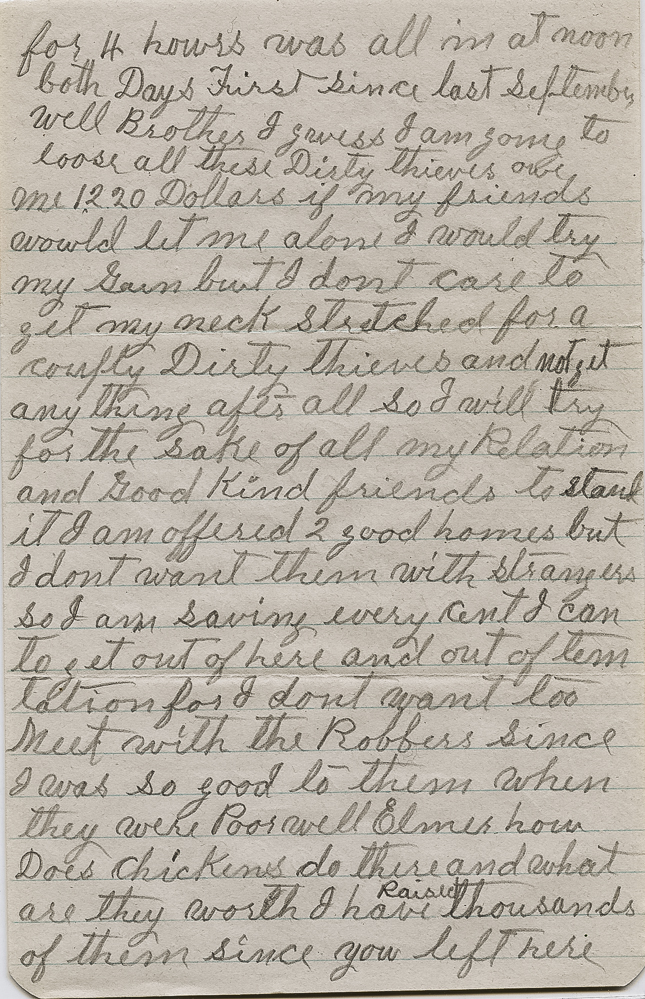 for 4 hours was all in at noon
both Days First since last September
well Brother I guess I am going to
loose all these Dirty thieves owe
me 1220 Dollars if my friends
would let me alone I would try
my Gun but I dont care to
get my neck stretched for a
coufly Dirty thieves and not get
any thing after all so I will try
for the sake of all my Relation
and Good Kind friends to stand
it I am offered 2 good homes but
I dont want them with strangers
so I am saving every cent I can
to get out of here and out of tem
tation for I dont want too
Meet with the Robbers since
I was so good to them when
they were Poor well Elmer how
Does chickens do there and what
are they worth I have Raised thousands
of them since you left here